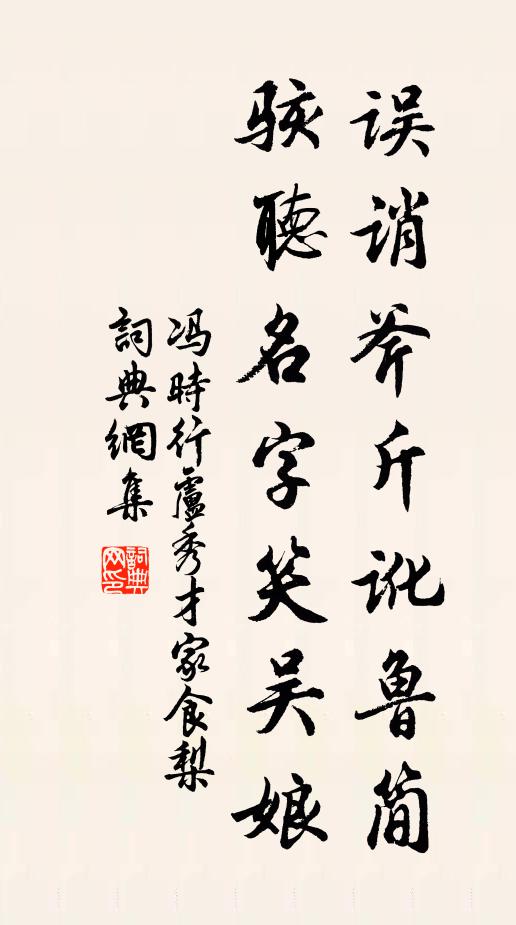 误诮斧斤讹鲁简
骇聽名字笑吴娘
冯時行盧秀才家食梨
詞典網集
詞典网印